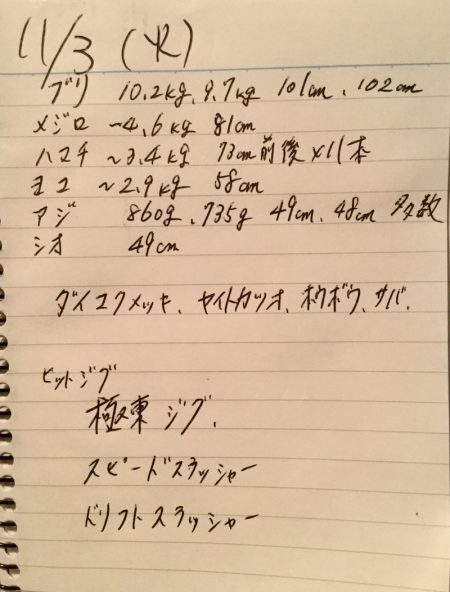 11/3 (火)
ブリ 10.2kg、9.7kg 101cm、102cm
メジロ ~4.6kg 81cm
ハマチ ~3.4kg 73cm前後×11本
ヨコ ~2.9kg 58cm
アジ 860g、735g 49cm、48cm 多数
シオ 49cm
ダイコクメッキ、ヤイトカツオ、ホウボウ、サバ、
ヒットジグ
極東ジグ、
スピードスラッシャー
ドリフトスラッシャー